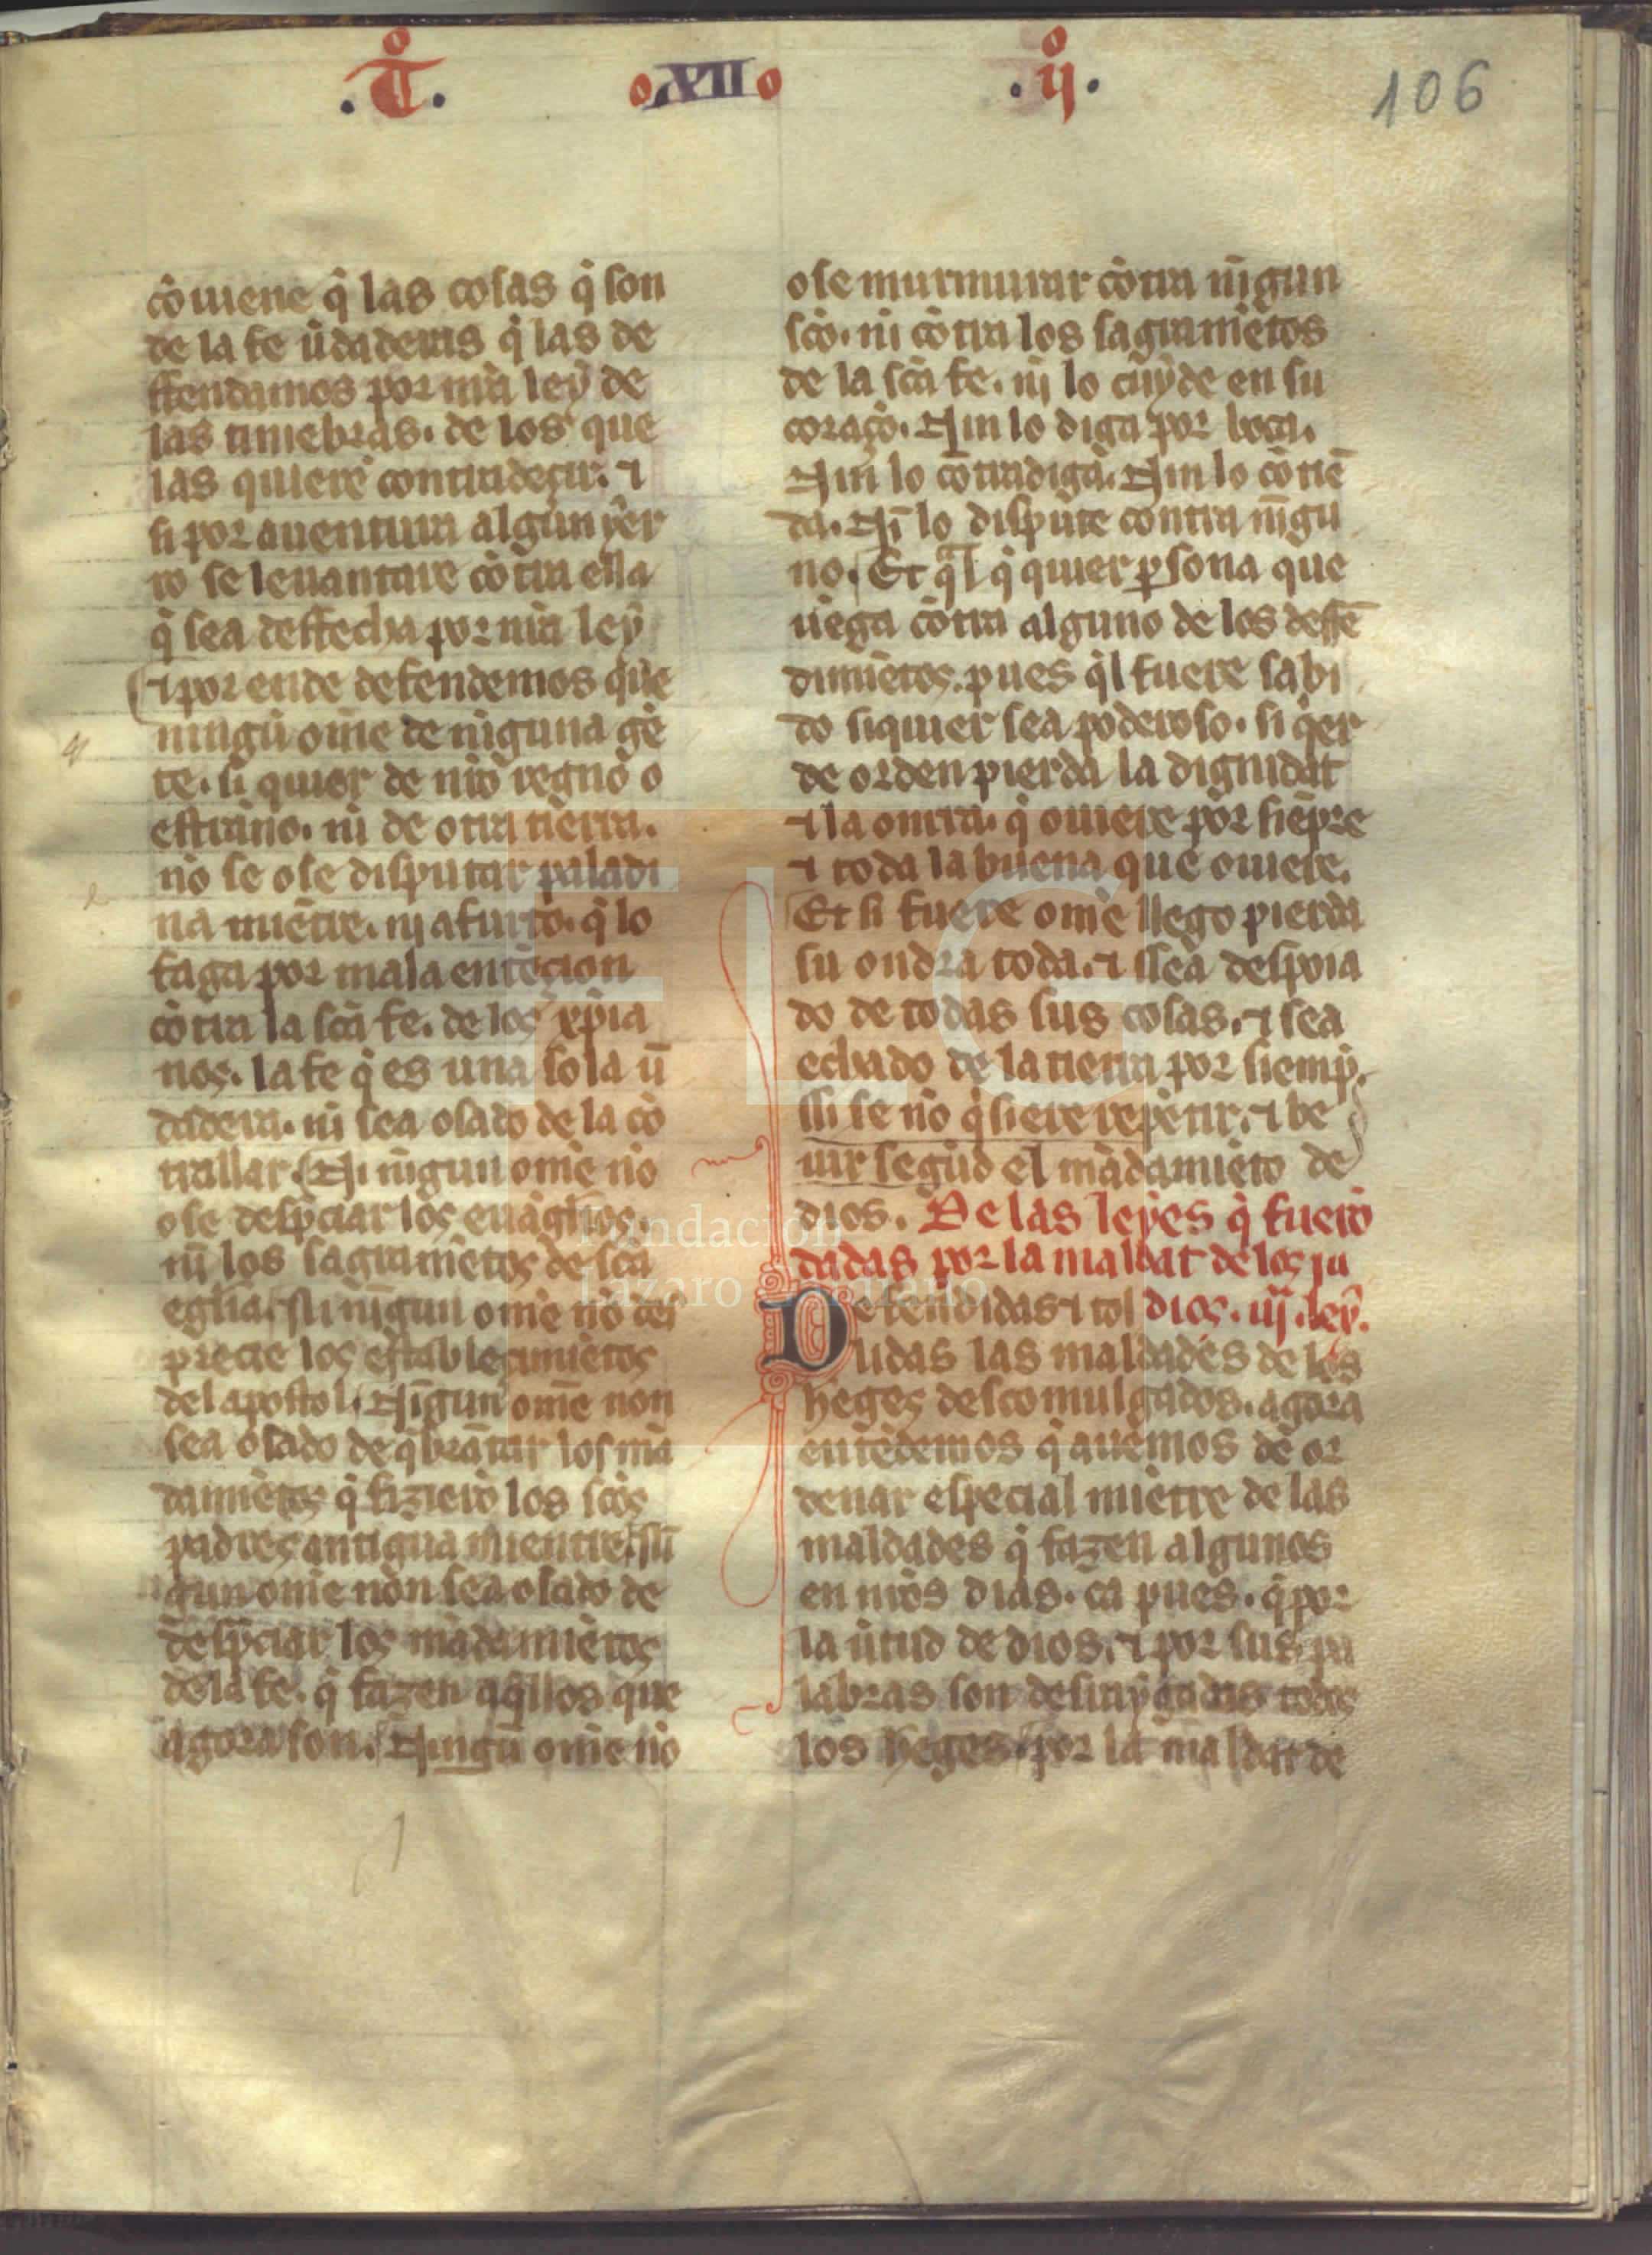 .T̊. XII .ij̊.
106
cōuiene q̄ las cosas q̄ son
de la fe ūdaderas q̄ las de
ffendamos por nr̄a ley de
las tiniebras. de los que
las quierē contradeçir. ⁊
si por auentura algun yer
ro se leuantare cōtra ella
q̄ sea deffecha por nr̄a ley
⁊ por ende defendemos que
ningū om̄e de niguna gē
te. si quier de nr̄o regno o
estrano. ni de otra tierra.
nō se ose disputar paladi
na miētre. nj a furto. q̄ lo
faga por mala entēçion
cōtra la sc̄a fe. de los xp̄ia
nos. la fe q̄ es una sola ū
dadera. ni sea osado de la cō
trallar. Ni nigun om̄e nō
ose desp̄ciar los euāgl̄ios.
ni los sagramētos de sc̄a
egl̄ia. Ni nīgun om̄e nō des
precie los establesçimiētos
del apostol. Nīgun om̄e non
sea osado de q̄brātar los mā
damiētos q̄ fizierō los sc̄os
padres antigua mientre. Nī
gun om̄e non sea osado de
desp̄ciar los mādamiētos
de la fe. q̄ fazen aq̄llos que
agora son. Ningū om̄e nō
ose murmurar cōtra nīgun
sc̄o. ni cōtra los sagramētos
de la sc̄a fe. nj lo cuyde en su
coraçō. Nin lo diga por boca.
Nin lo cōtradiga. Nin lo cōtiē
da. Nī lo dispute contra nīgu
no. Et q̄l q̄ quier ꝑsona que
uēga cōtra alguno de los deffē
dimiētos. pues q̄l fuere sabi
do siquier sea poderoso. si q̄er
de orden pierda la dignidat
⁊ la onrra. q̄ ouiere por siēpre
⁊ toda la buena que ouiere.
Et si fuere om̄e llego pierda
su ondra toda. ⁊ ssea despoia
do de todas sus cosas. ⁊ sea
echado de la tierra por siemp̄.
ssi se nō q̄siere repētir. ⁊ be
uir segūd el mādamiēto de
dios. De las leyes q̄ fuerō
dadas por la maldat de los iu
Defendidas ⁊ tol dios. iij. ley.
lidas las maldades de los
heges descomulgados. agora
entēdemos q̄ auemos de or
denar espeçial miētre de las
maldades q̄ fazen algunos
en nr̄os dias. ca pues. q̄ por
la ūtud de dios. ⁊ por sus pa
labras son desraygadas todos
los heges. por la maldat de